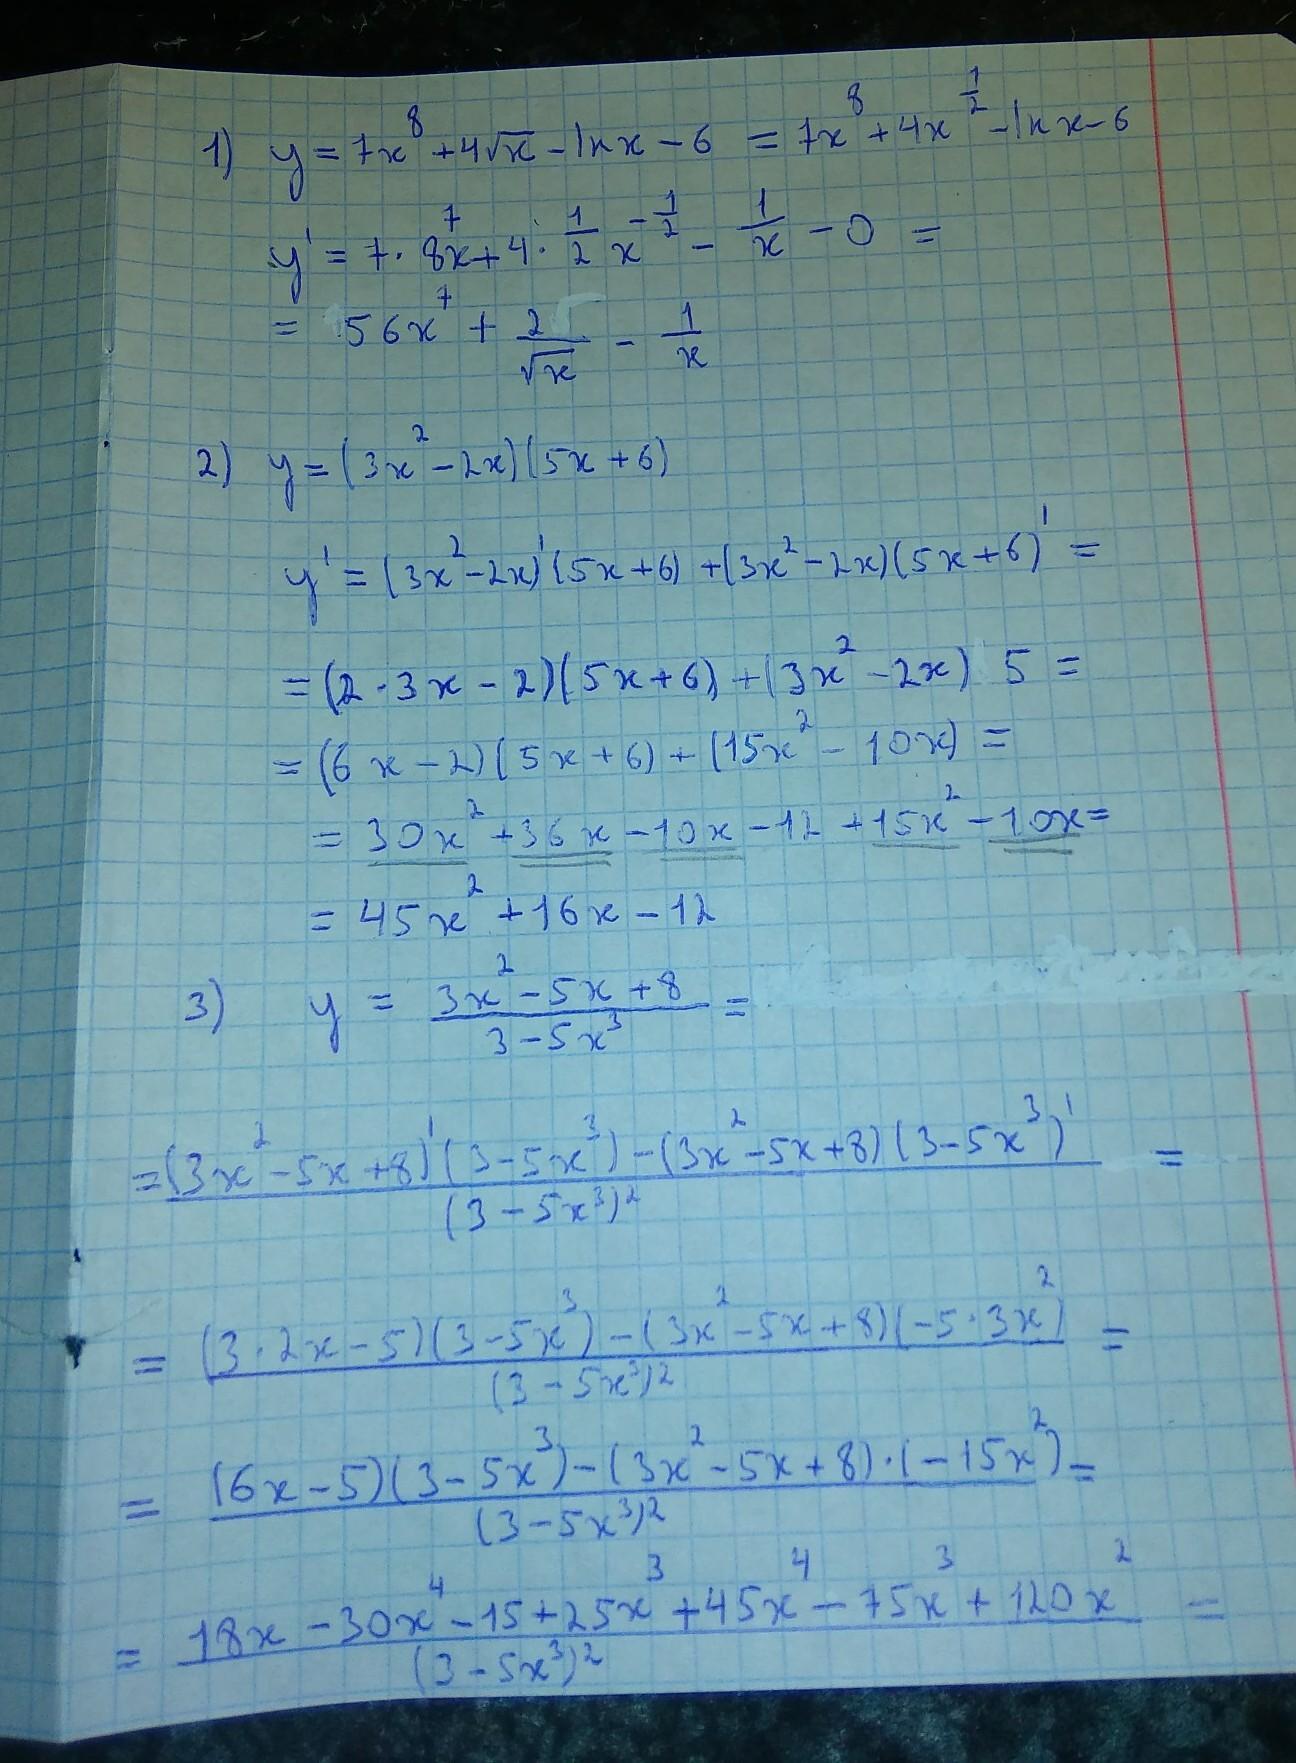 1) y = 7x⁸ + 4√x - ln x - 6 = 7x⁸ + 4x^(1/2) - ln x - 6
y' = 7 · 8x⁷ + 4 · 1/2 x^(-1/2) - 1/x - 0 =
= 56x⁷ + 2/√x - 1/x
2) y = (3x² - 2x)(5x + 6)
y' = (3x² - 2x)'(5x + 6) + (3x² - 2x)(5x + 6)' =
= (2 · 3x - 2)(5x + 6) + (3x² - 2x) 5 =
= (6x - 2)(5x + 6) + (15x² - 10x) =
= 30x² + 36x - 10x - 12 + 15x² - 10x =
= 45x² + 16x - 12
3) y = (3x² - 5x + 8)/(3 - 5x³) =
= ((3x² - 5x + 8)'(3 - 5x³) - (3x² - 5x + 8)(3 - 5x³)')/(3 - 5x³)² =
= ((3 · 2x - 5)(3 - 5x³) - (3x² - 5x + 8)(-5 · 3x²))/(3 - 5x³)² =
= ((6x - 5)(3 - 5x³) - (3x² - 5x + 8) · (-15x²))/(3 - 5x³)² =
= (18x - 30x⁴ - 15 + 25x³ + 45x⁴ - 75x³ + 120x²)/(3 - 5x³)² =